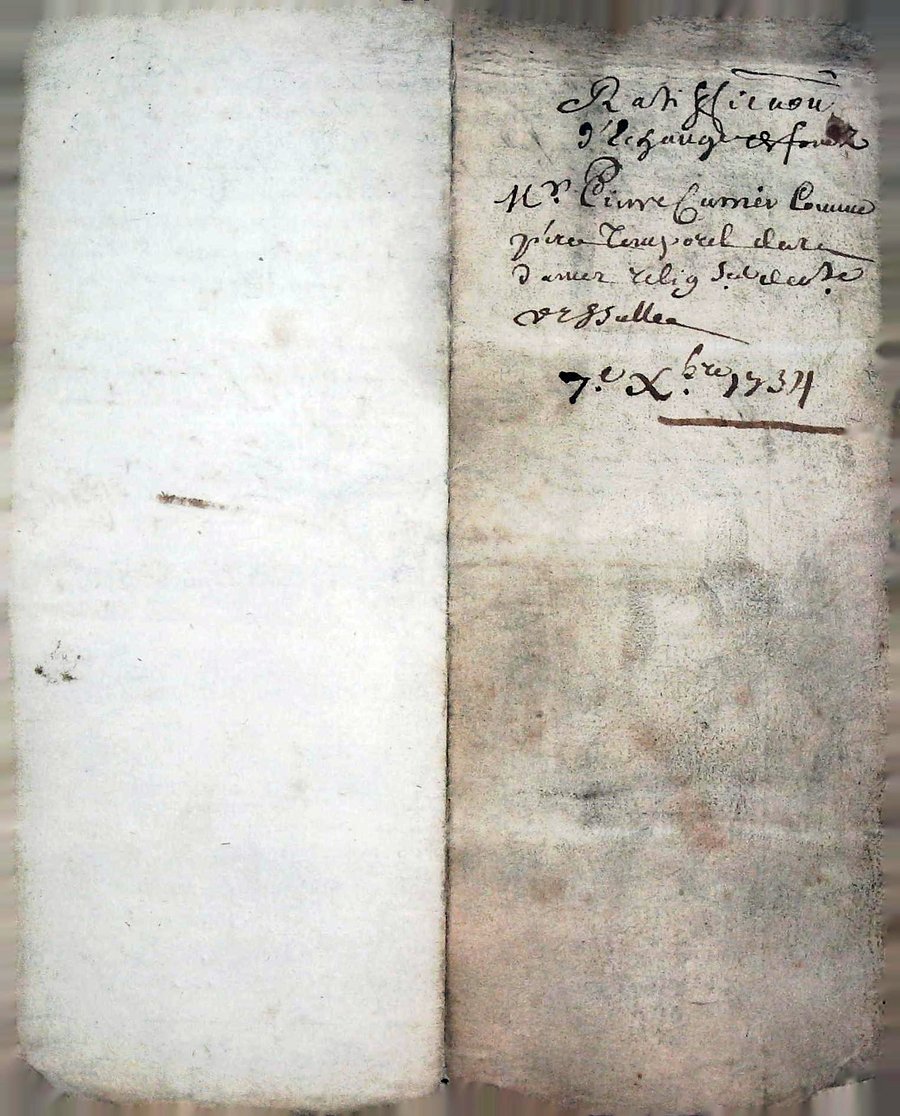 Ratiffication
d'Echange de fonds
Mr. Pierre Currier Comme
père Temporel de
dames relig Ste de
7.e Xbre. 1734